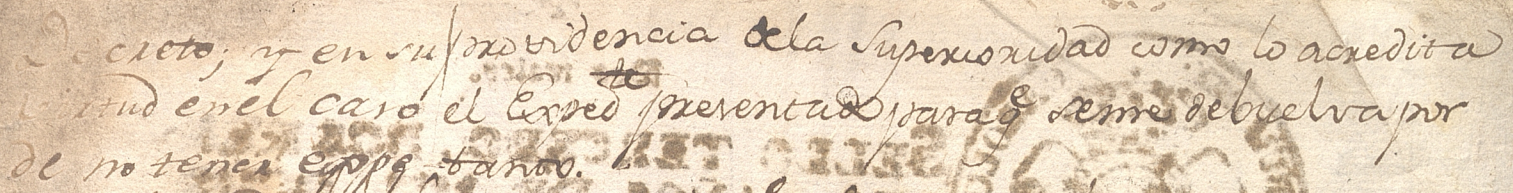 creto, y en su providencia dela Superioridad como lo acredita
en el caso el Exped.te presentado para q.e seme debuelva por
de no tener tanto.